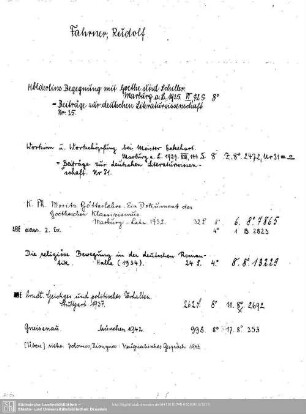 Fahrner, Rudolf
Hölderlins Begegnung mit Goethe und Schiller.
Marburg a. L. 1925. 8°
= Beiträge zur deutschen Literaturwissenschaft
Nr. 25.
Wortsinn u. Wortschöpfung bei Meister Eckehart.
Marburg a. L. 1929. S. 8° 7. 8° 2472, Nr 31
= Beiträge zur deutschen Literaturwissen-
schaft. Nr 31.
K. Ph. Moritz Götterlehre. Ein Dokument des
Goetheschen Klassizismus
Marburg. Lahn 1932. 32 S. 8° 6. 8° 7865
4° 1 B 2823
Die religiöse Bewegung in der deutschen Roman-
tik. Halle (1934). 24 S. 4° 8. 8° 13229
Arndt. Geistiges und politisches Verhalten.
Stuttgart 1937. 262 S. 8° 18. 8° 2692
Gneisenau. München 1942. 99 S. 8° 17. 8° 353
[Übers.] siehe: Solomos, Dionysios